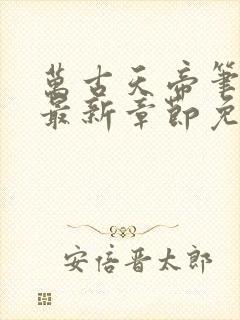 萬古天帝筆
最新章節免
安倍晋太郎